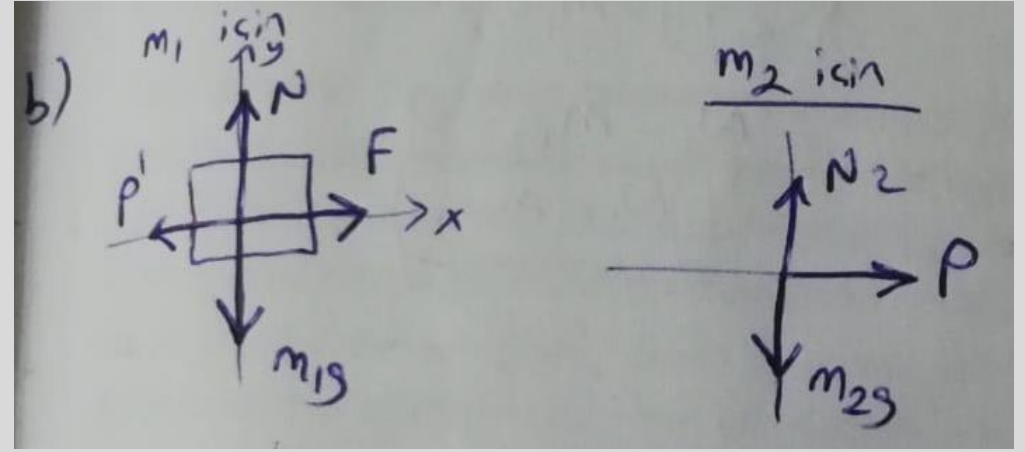 b)
m1 için
y
N
F
P'
x
m1g
m2 için
N2
P
m2g